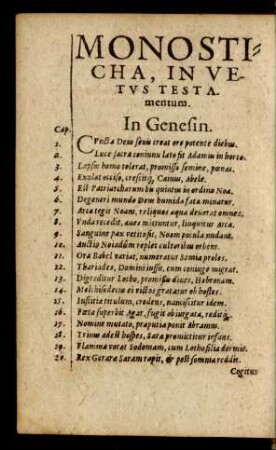 MONOSTI=
CHA, IN VE-
TVS TESTA
mentum.
In Genesin.
Cap.
1. CVncta Deus senis creat ore potente diebus.
2. Luce sacra coniunx lato fit Adamus in horto.
3. Lapsus homo tolerat, promisso semine, pœnas.
4. Exulat occiso, crescitq, Cainus, Abele.
5. Est Patriarcharum bis quintus in ordine Noa.
6. Degeneri mundo Deus humida fata minatur.
7. Arca tegit Noam, reliquos aqua deuorat omnes.
8. Vnda recedit, aues mittuntur, linquitur Arca.
9. Sanguine pax vetitost, Noam pocula nudant.
10. Auctio Noiadum replet cultoribus orbem.
11. Ora Babel variat, numeratur Semia proles.
12. Thariades, Domini iussu, cum coniuge migrat.
13. Digreditur Lotho, promissu diues, Hebronam.
14. Melchisedecus ei victos gratatur ob hostes.
15. Iustitiæ titulum, credens, nanciscitur idem.
16. Fœta superbit Agar, fugit obiurgata, reditq,
17. Nomine mutato, præputia ponit Abramus.
18. Trinus adest hospes, Saræ promittitur infans.
19. Flamma vorat Sodomam, cum Lotho filia dormit.
20. Rex Geraræ Saram rapit, & post somnia reddit.
Cogitur